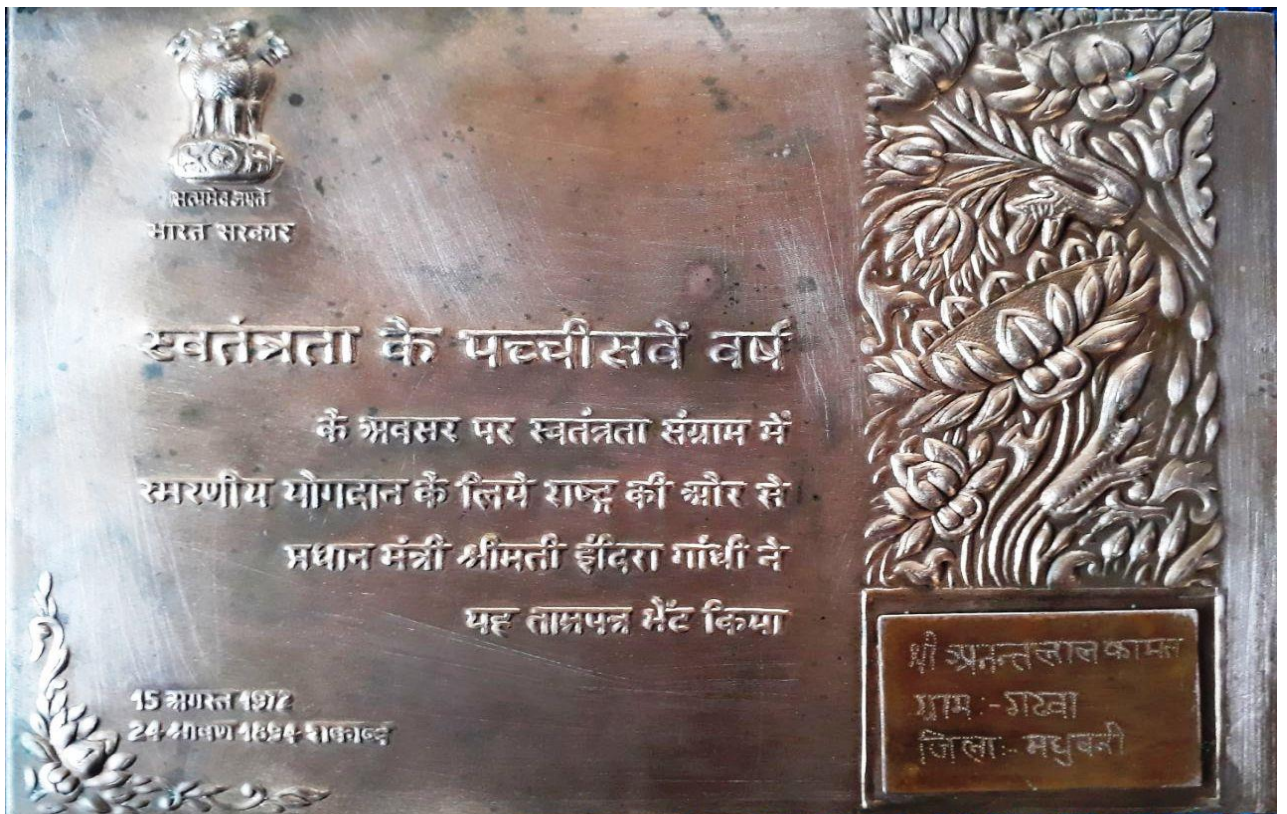 सत्यमेव जयते
भारत सरकार
स्वतंत्रता के पच्चीसवें वर्ष
के अवसर पर स्वतंत्रता संग्राम में
स्मरणीय योगदान के लिये राष्ट्र की ओर से
प्रधान मंत्री श्रीमती इंदिरा गांधी ने
यह ताम्रपत्र भेंट किया
15 अगस्त 1972
24 श्रावण 1894 शकाब्द
श्री अनन्तलाल कामत
ग्राम:-गठवा
जिला:-मधुबनी